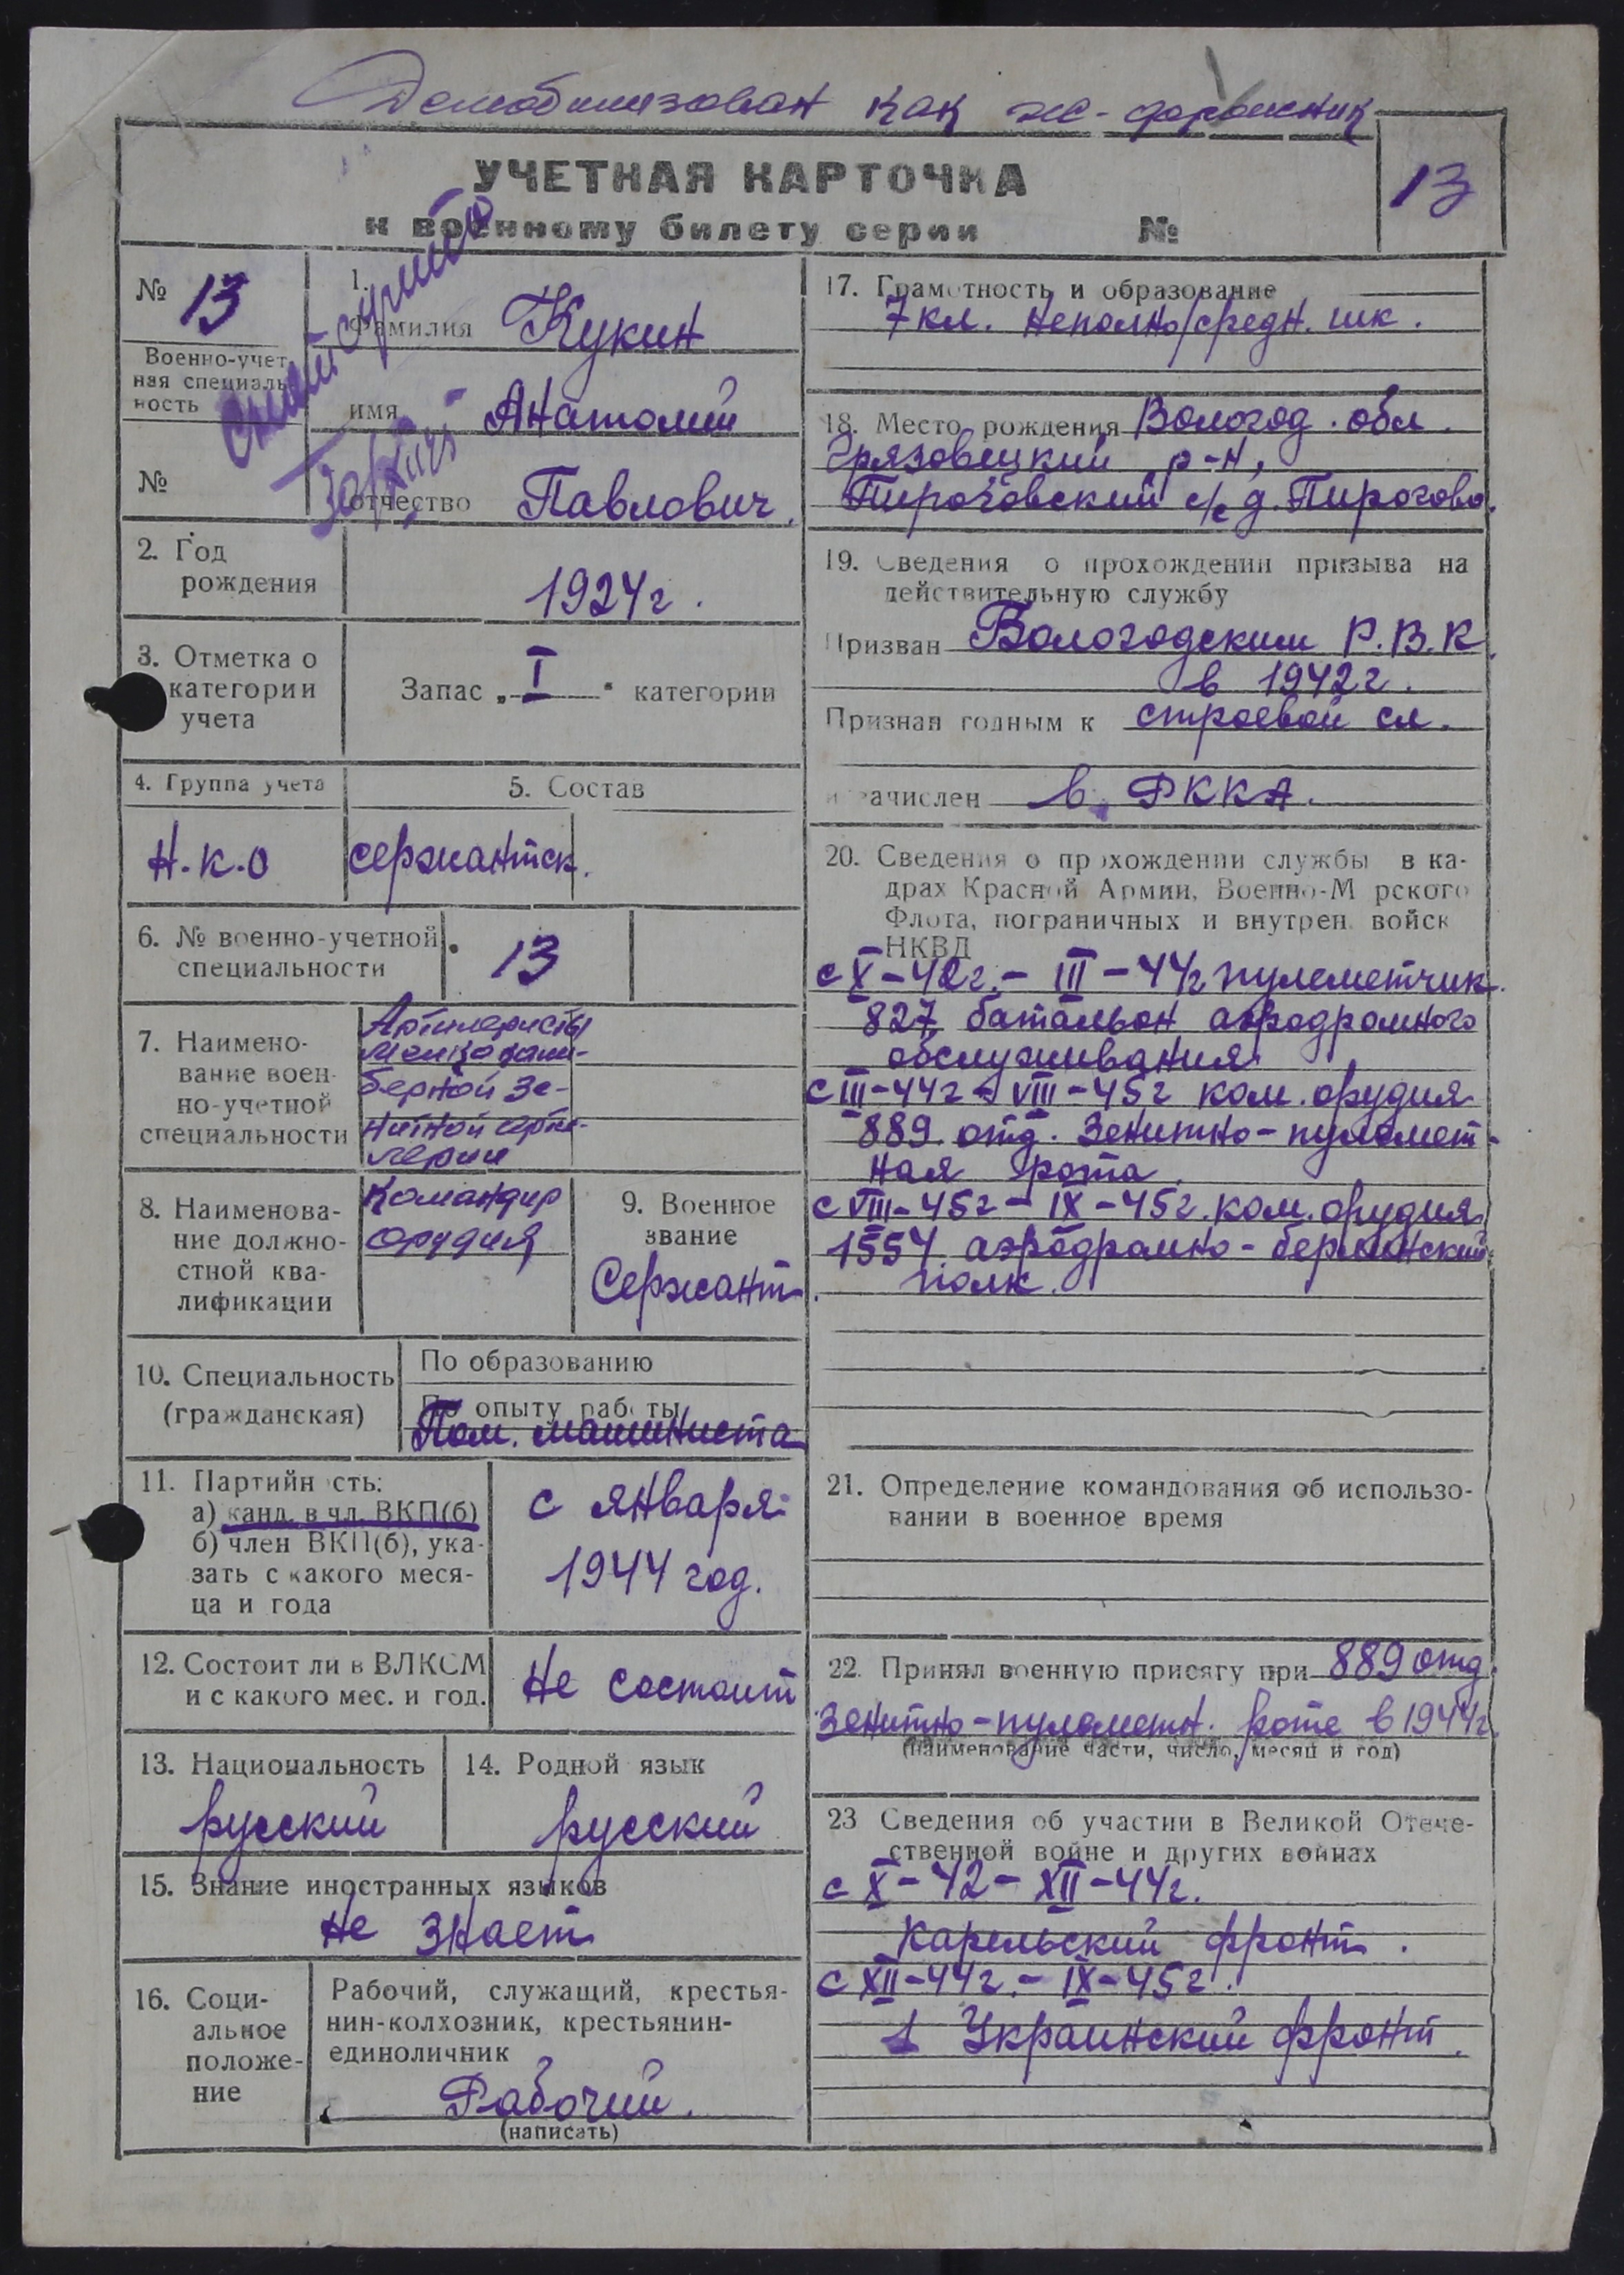 Демобилизован как жс-дорожник
УЧЕТНАЯ КАРТОЧКА
к военному билету серии №
13
№ 13
Военно-учет
ная специаль
ность
№
1.
Фамилия Кукин
имя Анатолий
отчество Павлович.
2. Год
рождения
1924г.
3. Отметка о
категории
учета
Запас „ I " категории
4. Группа учета
5. Состав
Н.К.О
сержантск.
6. № военно-учетной
специальности
13
7. Наимено-
вание воен-
но-учетной
специальности
Артилеристы
мелкокали-
берной зе-
нитной арти-
лерии
8. Наименова-
ние должно-
стной ква-
лификации
Командир
орудия
9. Военное
звание
Сержант.
10. Специальность
(гражданская)
По образованию
По опыту работы
Пом. машиниста
11. Партийность:
а) канд. в чл. ВКП(б)
б) член ВКП(б), ука-
зать с какого меся-
ца и года
с января
1944 год.
12. Состоит ли в ВЛКСМ
и с какого мес. и год.
Не состоит
13. Национальность
русский
14. Родной язык
русский
15. Знание иностранных языков
Не знает
16. Соци-
альное
положе-
ние
Рабочий, служащий, крестья-
нин-колхозник, крестьянин-
единоличник
Рабочий.
(написать)
17. Грамотность и образование
7 кл. неполно/средн. шк.
18. Место рождения Вологод. обл.
Грязовецкий р-н,
Пироговский с/с д. Пирогово.
19. Сведения о прохождении призыва на
действительную службу
Призван Вологодским Р.В.К.
в 1942г.
Признан годным к строевой сл.
и зачислен в РККА.
20. Сведения о прохождении службы в ка-
драх Красной Армии, Военно-Морского
Флота, пограничных и внутрен. войск
НКВД
с X-42г.- III-44г пулеметчик
827 батальон аэродромного
обслуживания
с III-44г - VIII-45г ком. орудия
889 отд. зенитно-пулемет-
ная рота.
с VIII-45г - IX-45г. ком. орудия
1554 аэродромно-берлинский
полк.
21. Определение командования об использо-
вании в военное время
22. Принял военную присягу при 889 отд.
зенитно-пулеметн. роте в 1944г.
(наименование части, число, месяц и год)
23 Сведения об участии в Великой Отече-
ственной войне и других войнах
с X-42-XII-44г.
Карельский фронт.
с XII-44г.- IX-45г.
1 Украинский фронт.